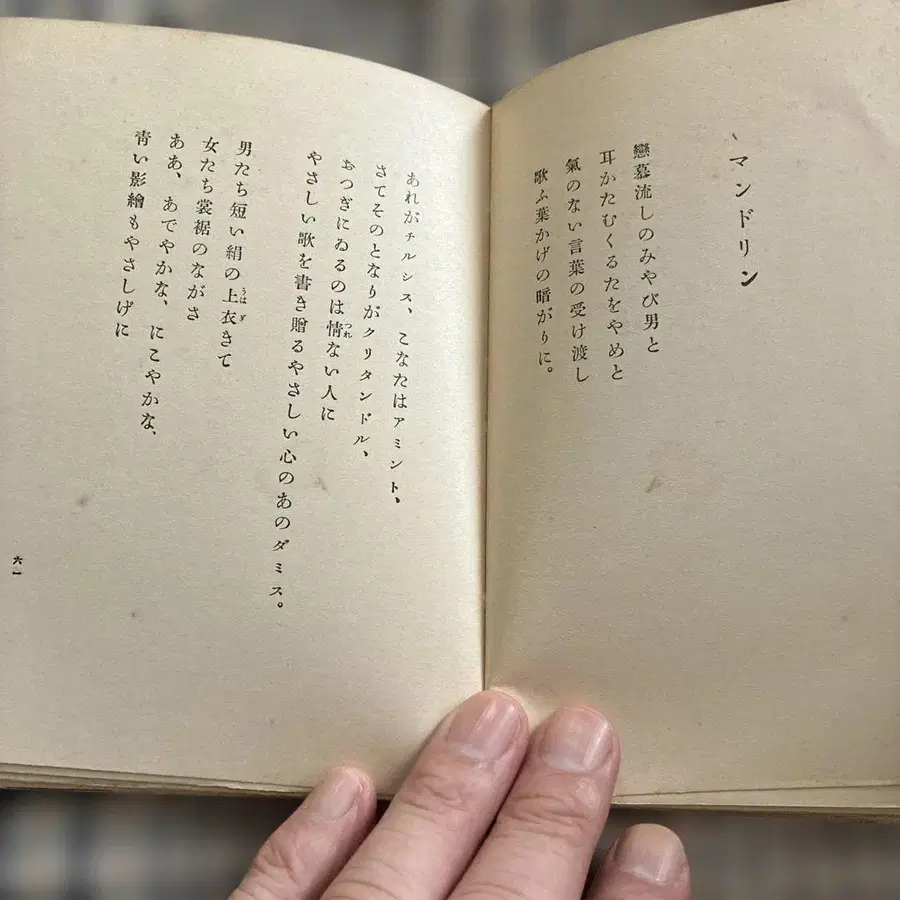 マンドリン
戀慕流しのみやび男と
耳かたむくるたをやめと
氣のない言葉の受け渡し
歌ふ葉かげの暗がりに。
あれがチルシス、こなたはアミント、
さてそのとなりがクリタンドル、
おつぎにゐるのは情ない人に
つれ
やさしい歌を書き贈るやさしい心のあのダミス。
男たち短い絹の上衣きて
うはぎ
女たち裳裾のながさ
ああ、あでやかな、にこやかな、
青い影繪もやさしげに
六一